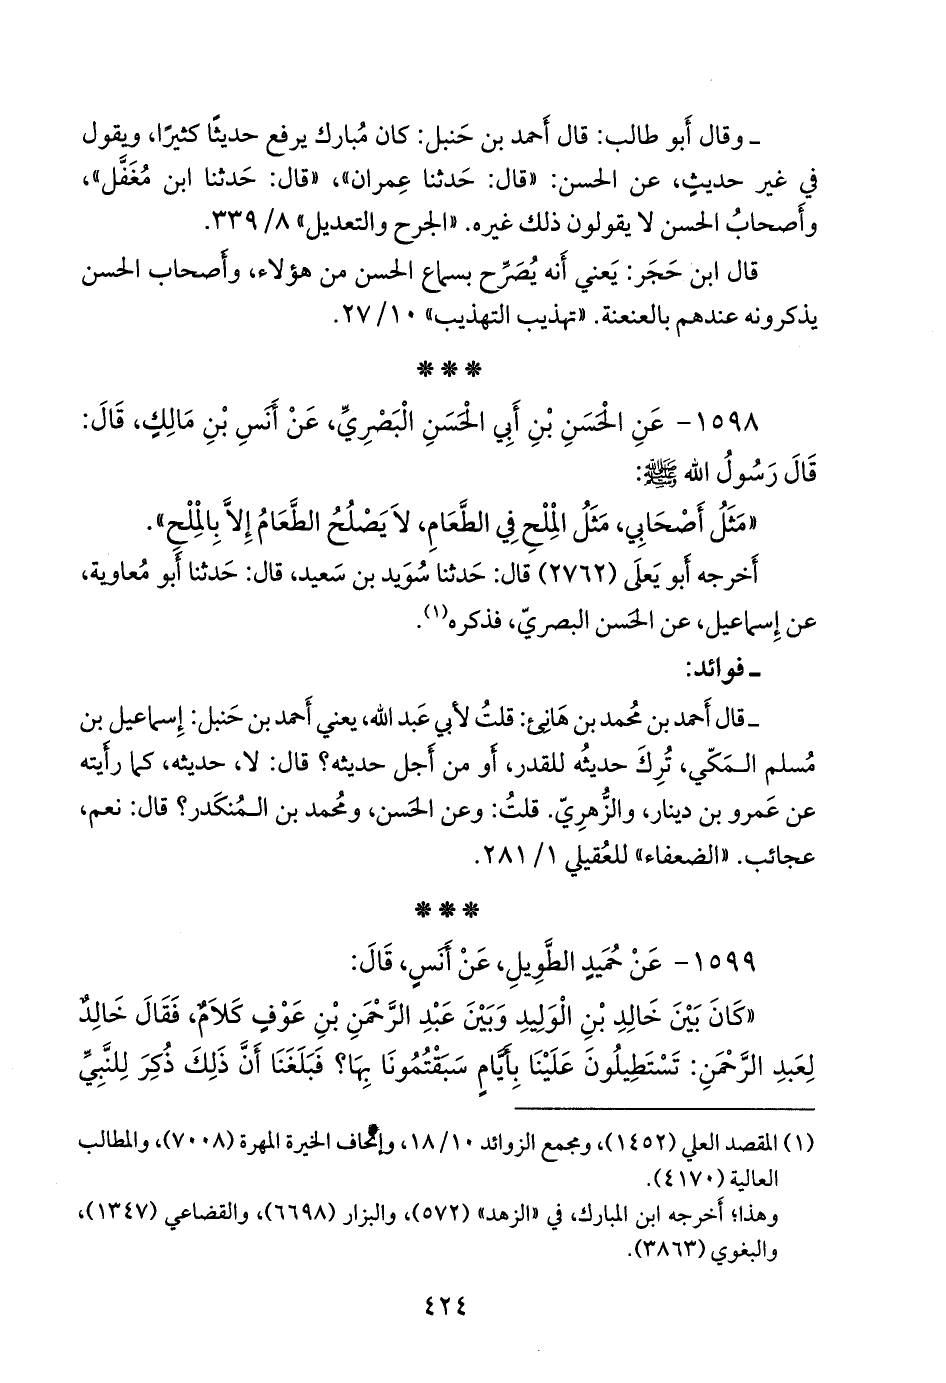 ـ وقال أَبو طالب: قال أَحمد بن حَنبل: كان مُبارك يرفع حديثًا كثيرًا، ويقول
في غير حديثٍ، عن الحسن: «قال: حَدثنا عِمران»، «قال: حَدثنا ابن مُغَفَّل»،
وأَصحابُ الحسن لا يقولون ذلك غيره. «الجرح والتعديل» ٨/ ٣٣٩.
قال ابن حَجَر: يَعني أَنه يُصَرِّح بسماع الحسن من هؤلاء، وأَصحاب الحسن
يذكرونه عندهم بالعنعنة. «تهذيب التهذيب» ١٠/ ٢٧.
***
١٥٩٨- عَنِ الْحَسَنِ بْنِ أَبِي الْحَسَنِ الْبَصْرِيِّ، عَنْ أَنَسِ بْنِ مَالِكٍ، قَالَ:
قَالَ رَسُولُ الله ﷺ:
«مَثَلُ أَصْحَابِي، مَثَلُ الْمِلْحِ فِي الطَّعَامِ، لاَ يَصْلُحُ الطَّعَامُ إِلاَّ بِالْمِلْحِ».
أَخرجه أَبو يَعلَى (٢٧٦٢) قال: حَدثنا سُوَيد بن سَعيد، قال: حَدثنا أَبو مُعاوية،
عن إِسماعيل، عن الحَسن البصريّ، فذكره(١).
ـ فوائد:
ـ قال أَحمد بن مُحمد بن هَانِئ: قلتُ لأَبي عَبد الله، يعني أَحمد بن حَنبل: إِسماعيل بن
مُسلم الـمَكّي، تُرِكَ حديثُه للقدر، أَو من أَجل حديثه؟ قال: لا، حديثه، كما رأَيته
عن عَمرو بن دينار، والزُّهرِيّ. قلتُ: وعن الحَسن، ومُحمد بن الـمُنكَدر؟ قال: نعم،
عجائب. «الضعفاء» للعُقيلي ١/ ٢٨١.
***
١٥٩٩- عَنْ حُمَيدٍ الطَّوِيلِ، عَنْ أَنَسٍ، قَالَ:
«كَانَ بَيْنَ خَالِدِ بْنِ الْوَلِيدِ وَبَيْنَ عَبْدِ الرَّحْمَنِ بْنِ عَوْفٍ كَلاَمٌ، فَقَالَ خَالِدٌ
لِعَبدِ الرَّحْمَنِ: تَسْتَطِيلُونَ عَلَيْنَا بِأَيَّامٍ سَبَقْتُمُونَا بِهَا؟ فَبَلَغَنَا أَنَّ ذَلِكَ ذُكِرَ لِلنَّبِيِّ
(١) المقصد العلي (١٤٥٢)، ومجمع الزوائد ١٠/ ١٨، وإتحاف الخيرة المهرة (٧٠٠٨)، والمطالب
العالية (٤١٧٠).
وهذا؛ أخرجه ابن المبارك، في «الزهد» (٥٧٢)، والبزار (٦٦٩٨)، والقضاعي (١٣٤٧)،
والبغوي (٣٨٦٣).
٤٢٤